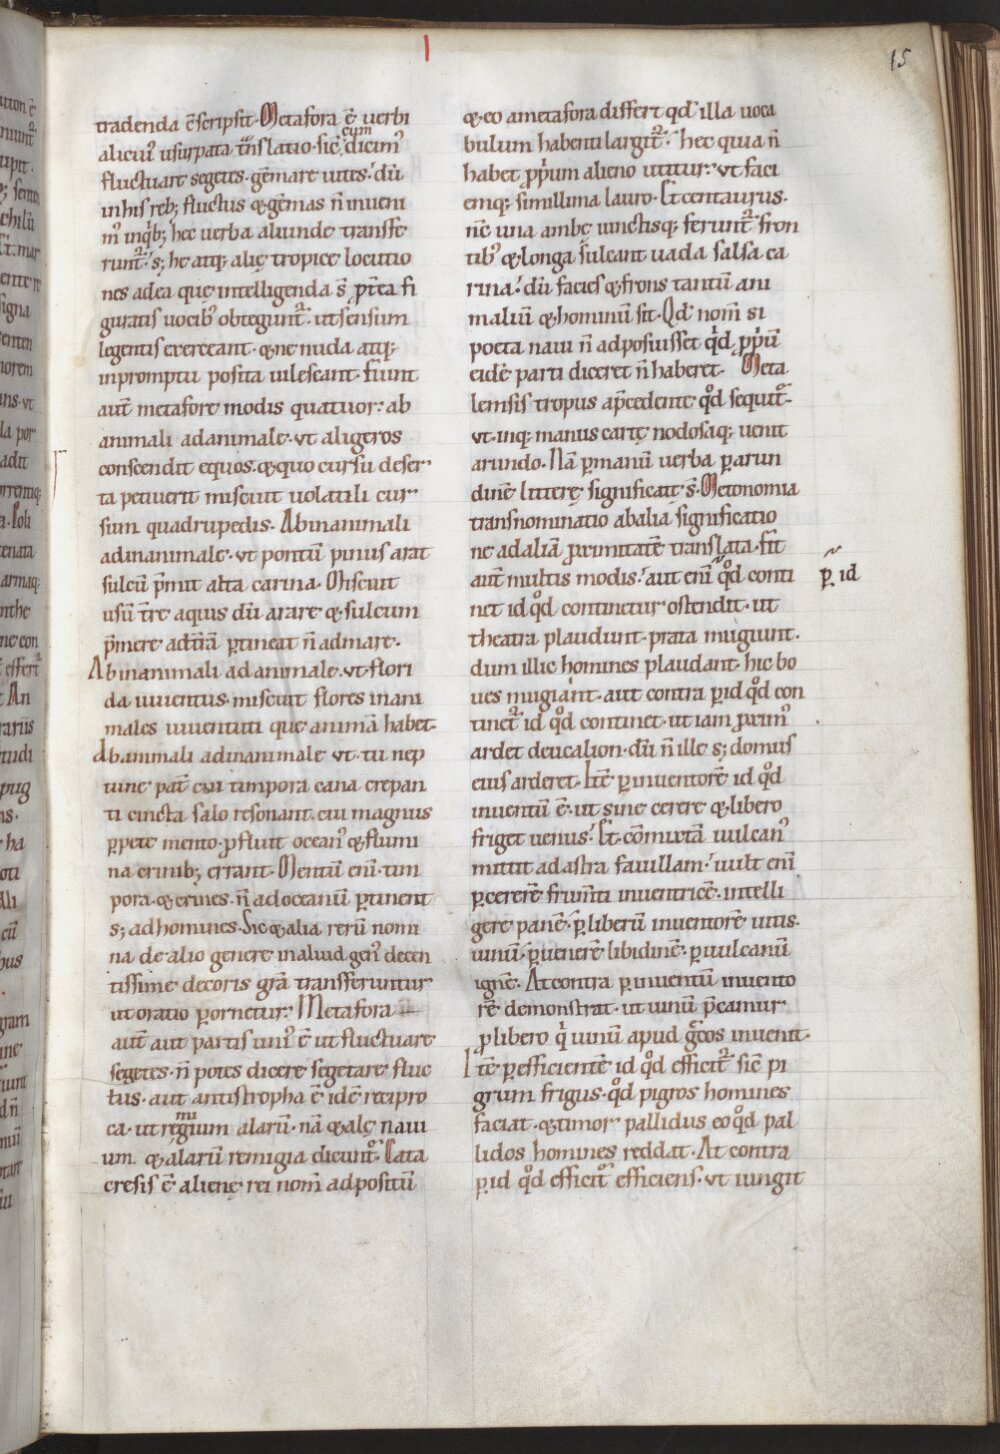 15
tradenda ē scripsit. Metafora ē uerbi
alicui᾿ usurpata trāslatio. sic̄ cum dicim᾿
fluctuare segetes. gēmare uites. dū
in his reb; fluctus & gēmas n̄ inueni
m᾿ inqͥb; hec uerba aliunde transfe
runt᷑. s; he atq; alię tropice locutio
nes adea quę intelligenda s̄ pr̄ea fi
guratis uocib᾿ obtegunt᷑. ut sensum
legentis exerceant. & ne nuda atq;
inpromptu posita uilescant. fiunt
aut̄ metafore modis quatuor: ab
animali adanimale. vt aligeros
conscendit equos. & quo cursu deser
ta petiuerit miscuit uolatili cur
sum quadrupedis. Abinanimali
adinanimale. vt pontū pinus arat
sulcū p̄mit alta carina. Miscuit
usū tr̄e aquis dū arare & sulcum
p̄mere adtr̄ā ꝑtineat n̄ admare.
Abinanimali adanimale. vt flori
da iuuentus. miscuit flores inani
males iuuentuti que animā habet.
Abanimali adinanimale vt. tu nep
tune pat̄ cui timpora cana crepan
ti cincta salo resonant. cui magnus
ꝑpete mento. ꝓfluit ocean᾿ & flumi
na crinib; errant. Mentū eni᷒. tim
pora. & crines. n̄ adoceanū ꝑtinent
s; adhomines. Sic & alia rerū nomi
na de alio genere inaliud gen᾿ decen
tissime decoris grā transferuntur
ut oratio ꝑornetur. Metafora
aut̄ aut partis uni᾿ ē ut fluctuare
segetes. n̄ potes dicere segetare fluc
tus. aut antistropha ē idē recipro
ca. ut remigium alarū. nā & alę naui
um. & alarū remigia dicunt᷑. Cata
cresis ē alienę rei nom̄ adpositū
& eo ametafora differt qd᾿ illa uoca
bulum habenti largit᷑. hec quia n̄
habet ꝓpͥum alieno utitur. vt faci
emq; simillima lauro. Et centaurus.
nc̄ una ambę iunctisq; ferunt᷑ fron
tib᾿ & longa sulcant uada salsa ca
rina. dū facies & frons tantū ani
maliū & hominū sit. Qd᾿ nom̄ si
poeta naui n̄ adposuisset qͥd ꝓpͥū
eidē parti diceret n̄ haberet. Meta
lemsis tropus ap̄cedente qͦd sequit᷑.
vt. inq; manus cartę nodosaq; uenit
arundo. Nā ꝑmanū uerba ꝑarun
dinē litterę significatę s̄. Metonomia
transnominatio abalia significatio
ne ad aliā ꝓximitatē translata. fit
aut̄ multis modis. aut eni᷒ qͦd conti
ꝑ id
net id qͦd continetur ostendit. ut
theatra plaudunt. prata mugiunt.
dum illic homines plaudant. hic bo
ues mugiant. aut contra ꝑid qͦd con
tinet᷑ id qͦd continet. ut iam ꝓxim᾿
ardet deucalion. dū n̄ ille s; domus
eius arderet. Itē ꝑinuentorē id qͦd
inuentū ē. ut sine cerere & libero
friget uenus. Et. cōmixtā uulcan᾿
mittit adastra fauillam. uult eni᷒
ꝑcererē frum̄ti inuentricē. intelli
gere panē. ꝑliberū inuentorē uitis.
uinū. ꝑuenerē libidinē. ꝑuulcanū
ignē. Atcontra ꝑinuentū inuento
rē demonstrat. ut uinū p̄camur
ꝓlibero qͥ uinū apud grecos inuenit.
Itē ꝑefficientē id qͦd efficit᷑ sic̄ pi
grum frigus. qͦd pigros homines
faciat. & timor pallidus eo qͦd pal
lidos homines reddat. At contra
ꝑid qͦd efficit᷑ efficiens. vt iungit